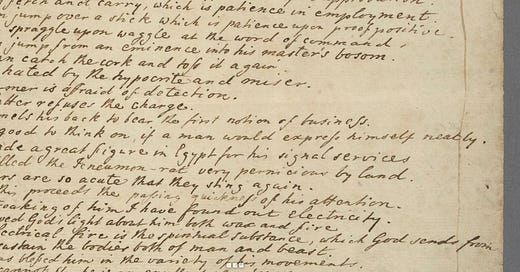 fetch and carry, which is patience in employment.
n jump over a stick which is patience upon proof positive.
spraggle upon waggle at the word of command.
jump from an eminence into his master's bosom.
an catch the cork and toss it again.
hated by the hypocrite and miser.
mer is afraid of detection.
tter refuses the charge.
mels his back to bear the first notion of business.
good to think on, if a man would express himself neatly.
ade a great figure in Egypt for his signal services
lled the Icneumon-rat very pernicious by land.
rs are so acute that they sting again.
this proceeds the passing quickness of his attention.
roaking of him I have found out electricity.
ved God's light about him both wax and fire.
ectrical fire is the spiritual substance, which God sends from
sustain the bodies both of man and beast.
as blessed him in the variety of his movements.